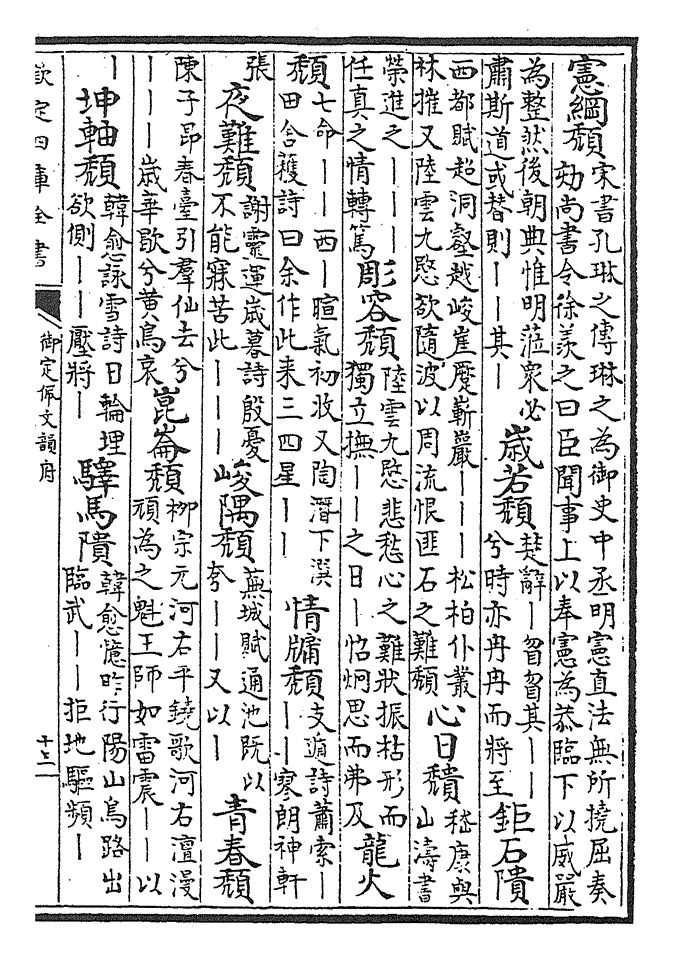 憲綱頽宋書孔琳之傳琳之為御史中丞明憲直法無所撓屈奏
劾尚書令徐羨之曰臣聞事上以奉憲為恭臨下以威嚴
為整然後朝典惟明蒞衆必
肅斯道或替則――其―
歲若頽楚辭―曶曶其――
兮時亦冉冉而將至
鉅石隤
西都賦超洞壑越峻崖蹷嶄巖―――松柏仆叢
林摧又陸雲九愍欲隨波以周流恨匪石之難頽
心日穨嵇康與
山濤書
榮進之―――
任真之情轉篤
彫容頽陸雲九愍悲愁心之難狀振枯形而
獨立撫――之日―怊炯思而弗及
龍火
頽七命――西―暄氣初收又陶潛下潠
田舍穫詩曰余作此来三四星――
情牖頽支遁詩蕭索―
――寥朗神軒
張
夜難頽謝靈運歲暮詩殷憂
不能寐苦此―――
峻隅頽蕪城賦通池既以
夸――又以―
青春頽
陳子昂春臺引羣仙去兮
―――歲華歇兮黃鳥哀
崑崙頽栁宗元河右平鐃歌河右澶漫
頑為之魁王師如雷震――以
―
坤軸頽韓愈詠雪詩日輪埋
欲側――壓將―
驛馬隤韓愈憶昨行陽山鳥路出
臨武――拒地驅頻―
欽定四庫全書
御定佩文韻府
十三